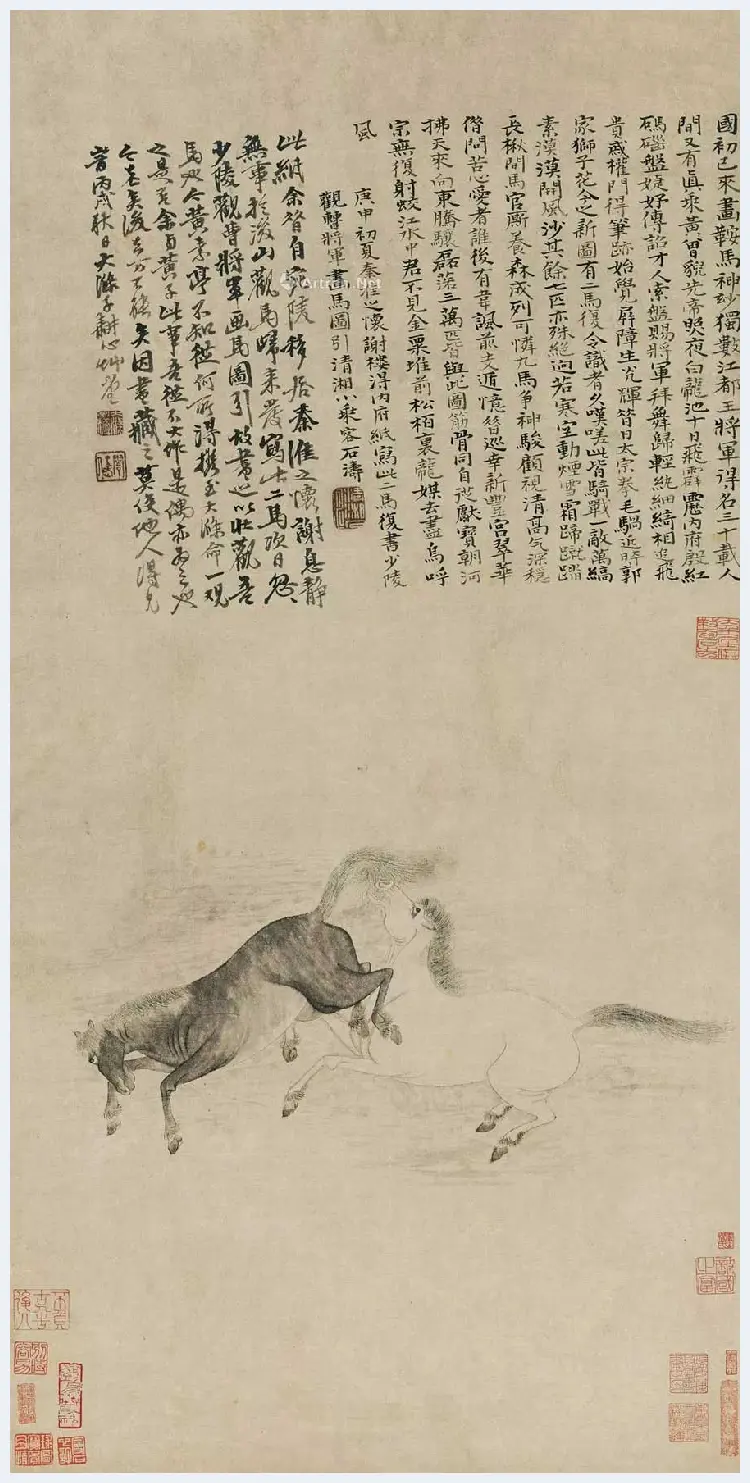 國初已來畫鞍馬神妙獨數江都王將軍得名三十載人
間又有真乘黃曾貌先帝照夜白龍池十日飛霹靂內府殷紅
碼碯盤婕妤傳詔才人索盤賜將軍拜舞歸輕紈細綺相追飛
貴戚權門得筆跡始覺屏障生光輝昔日太宗拳毛騧近時郭
家獅子花今之新圖有二馬復令識者久嘆嗟此皆騎戰一敵萬縞
素漠漠開風沙其餘七匹亦殊絕迥若寒空動煙雪霜蹄蹴踏
長楸間馬官廝養森成列可憐九馬爭神駿顧視清高氣深穩
借問苦心愛者誰後有韋諷前支遁憶昔巡幸新豐宮翠華
拂天來向東騰驤磊落三萬匹皆與此圖筋骨同自從獻寶朝河
宗無復射蛟江水中君不見金粟堆前松柏裏龍媒去盡鳥呼
風
庚申初夏秦淮之懷謝樓得內府紙寫此二馬復書少陵
觀曹將軍畫馬圖引清湘小乘客石濤
此紙余昔自宛陵移居秦淮之懷謝息靜
無事於後山觀馬歸來發寫此二馬次日發
少陵觀曹將軍画馬圖引故書之以壯觀吾
馬也今黃素亭不知從何所得携至大滌命一觀
之是天余與黃子此事吾從不大作是偶亦為之也
今老矣後去百不能矣因書藏之莫使他人得見
昔丙戌秋日大滌子耕心艸堂
Artron.Net